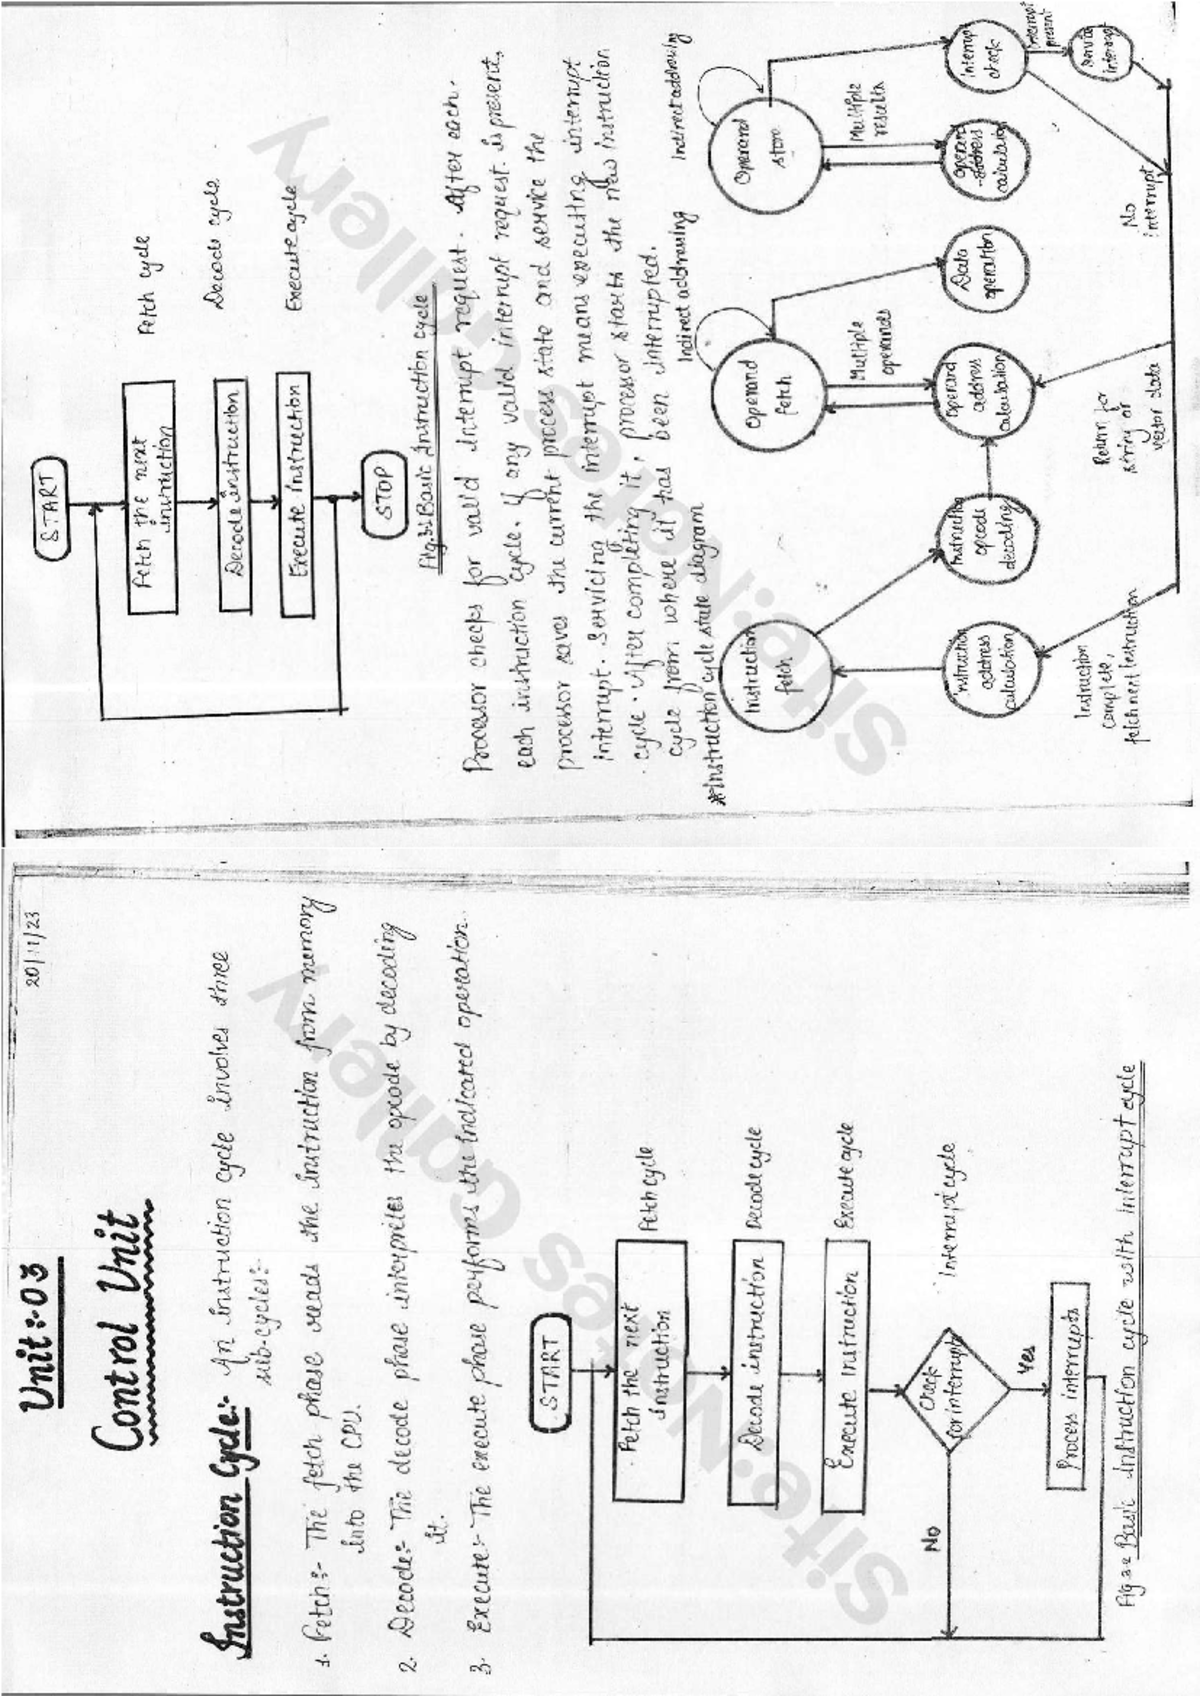 20/11/23
Unit:-03
Control Unit
Instruction Cycle:- An instruction cycle involves three
sub-cycles:-
1. Fetch:- The fetch phase reads the instruction from memory
into the CPU.
2. Decode:- The decode phase interpretes the opcode by decoding
it.
3. Execute:- The execute phase performs the indicated operation.
START
Fetch the next
instruction
Fetch cycle
Decode instruction
Decode cycle
Execute instruction
Execute cycle
Check
for interrupt
Interrupt cycle
No
Yes
Process interrupts
Basic instruction cycle with interrupt cycle
Site:Notes Gallery
START
Fetch the next
instruction
Fetch cycle
Decode instruction
Decode cycle
Execute instruction
Execute cycle
STOP
Basic Instruction cycle
Processor checks for valid interrupt request. After each
each instruction cycle. If any valid interrupt request is present,
processor saves the current process state and service the
interrupt. Servicing the interrupt means executing interrupt
cycle. After completing it, processor starts the new instruction
cycle from where it has been interrupted.
*Instruction cycle state diagram
Indirect addressing
Indirect addressing
Instruction
fetch
Operand
fetch
Operand
store
Multiple
operands
Multiple
results
Instruction
address
calculation
Instruction
opcode
decoding
Operand
address
calculation
Data
operation
Operand
address
calculation
Interrupt
check
Interrupt
present
Service
interrupt
No
interrupt
Instruction
complete,
fetch next instruction
Return for
string or
vector data
Site:Notes Gallery